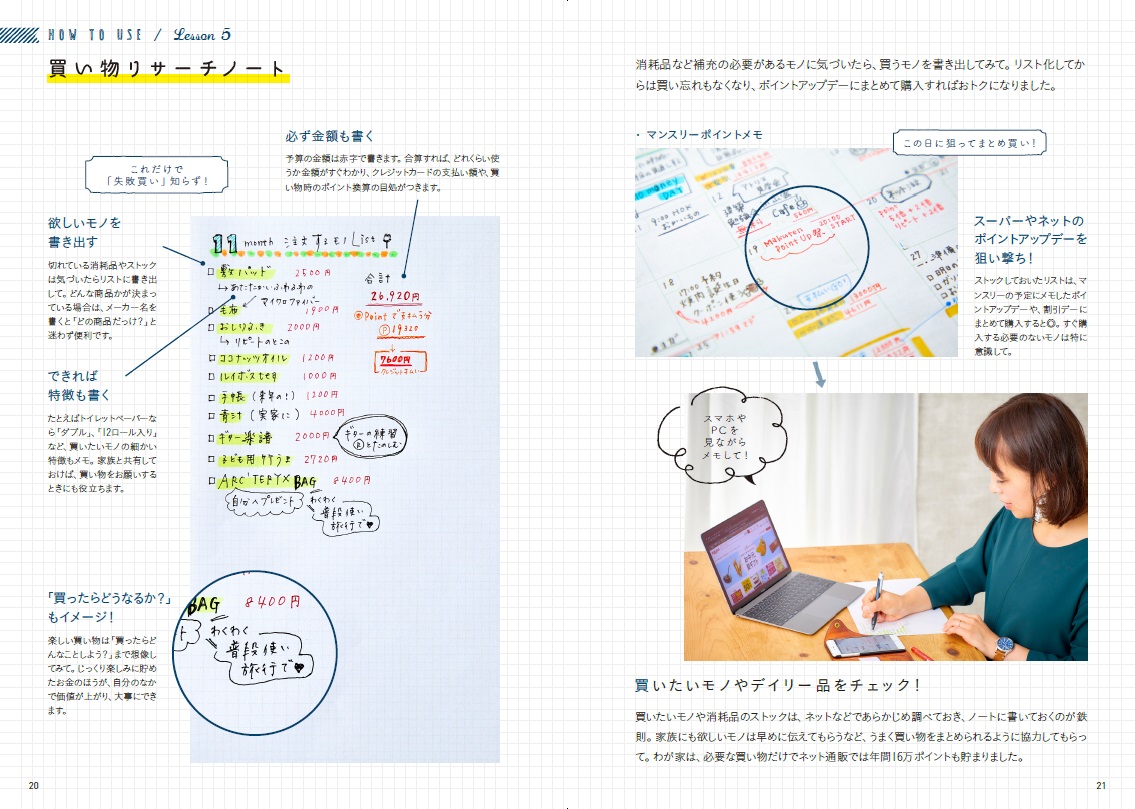 HOW TO USE / Lesson 5
買い物リサーチノート
これだけで
「失敗買い」知らず！
必ず金額も書く
予算の金額は赤字で書きます。合算すれば、どれくらい使
うか金額がすぐわかり、クレジットカードの支払い額や、買
い物時のポイント換算の目処がつきます。
欲しいモノを
書き出す
切れている消耗品やストック
は気づいたらリストに書き出
して。どんな商品かが決まっ
ている場合は、メーカー名を
書くと「どの商品だっけ？」と
迷わず便利です。
できれば
特徴も書く
たとえばトイレットペーパーな
ら「ダブル」、「12ロール入り」
など、買いたいモノの細かい
特徴もメモ。家族と共有して
おけば、買い物をお願いする
ときにも役立ちます。
「買ったらどうなるか？」
もイメージ！
楽しい買い物は「買ったらど
んなことしよう？」まで想像し
てみて。じっくり楽しみに貯め
たお金のほうが、自分のなか
で価値が上がり、大事にでき
ます。
11 month 注文するモノList
敷パッド 2500円
↳あたたかいふわふわの
マイクロファイバー
毛布 1900円
おしりふき 2000円
↳リピートのとこの
ココナッツオイル 1200円
ルイボスtea 1000円
手帳（来年の！） 1200円
青汁（実家に） 4000円
ギター楽譜 2000円
ギターの練習
子ども用竹うま 2720円
ARC'TERYX BAG 8400円
自分へプレゼント
わくわく
普段使い
旅行で♥
合計
26,920円
Pointで支払う分
Ⓟ19320
↓
7600円
クレジット払い
BAG 8400円
わくわく
普段使い
旅行で♥
20
消耗品など補充の必要があるモノに気づいたら、買うモノを書き出してみて。リスト化してか
らは買い忘れもなくなり、ポイントアップデーにまとめて購入すればおトクになりました。
・マンスリーポイントメモ
この日に狙ってまとめ買い！
Cafe
20:00
Rakuten START
Point UP祭
18
19
20
21
27
スーパーやネットの
ポイントアップデーを
狙い撃ち！
ストックしておいたリストは、マ
ンスリーの予定にメモしたポイ
ントアップデーや、割引デーに
まとめて購入すると◎。すぐ購
入する必要のないモノは特に
意識して。
スマホや
PCを
見ながら
メモして！
買いたいモノやデイリー品をチェック！
買いたいモノや消耗品のストックは、ネットなどであらかじめ調べておき、ノートに書いておくのが鉄
則。家族にも欲しいモノは早めに伝えてもらうなど、うまく買い物をまとめられるように協力してもらっ
て。わが家は、必要な買い物だけでネット通販では年間16万ポイントも貯まりました。
21